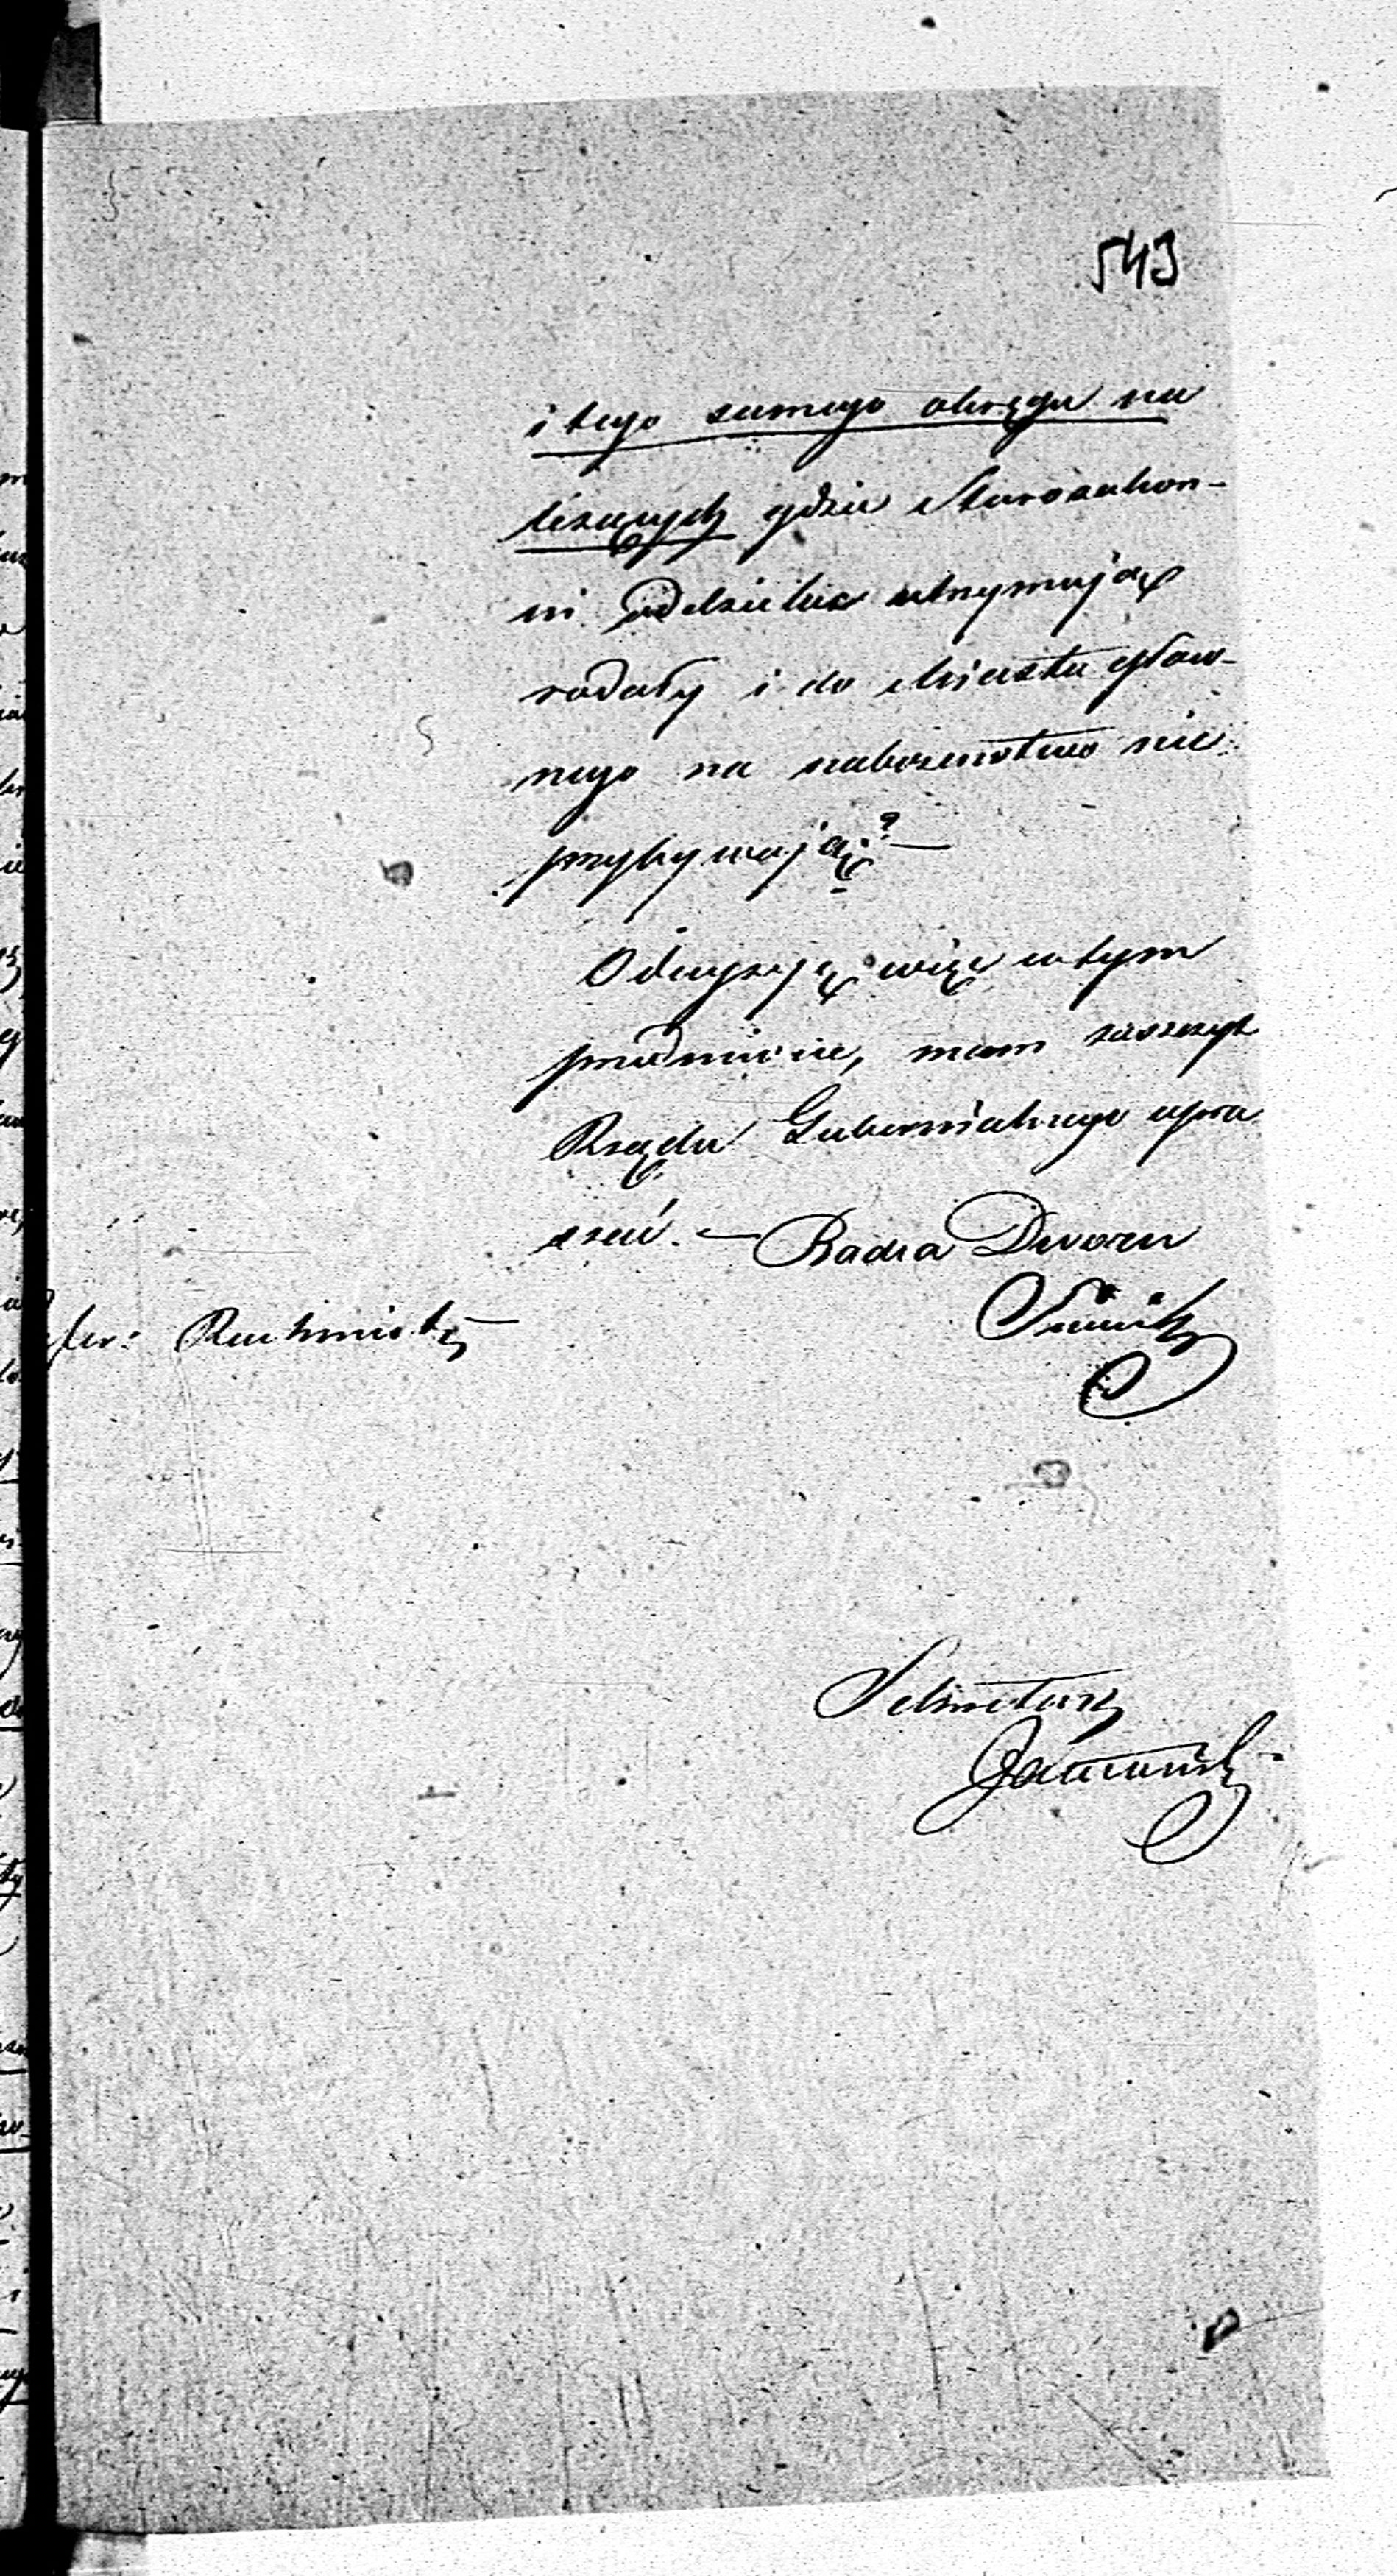 543
i tego samego okręgu na
leżących gdzie Starozakon-
ni oddzielne utrzymują
rodały i do Miasta głów-
nego na nabożeństwo nie
przybywają? —
O decyzyę więc w tym
przedmiocie, mam zaszczyt
Rządu Gubernialnego upra
szać. — Radca Dworu
Sekretarz